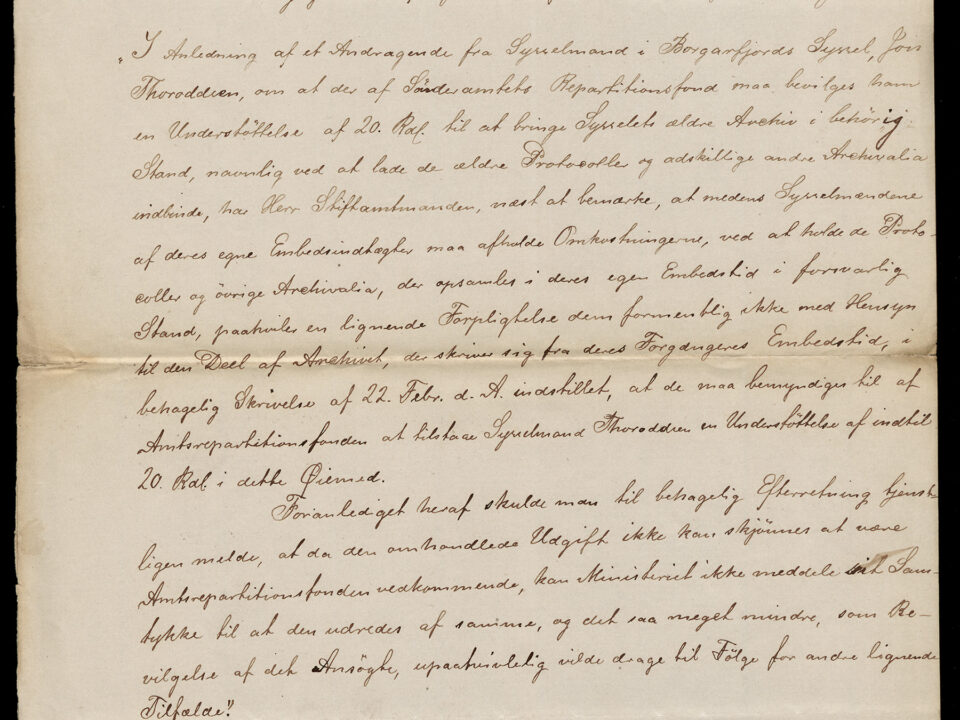 „I Anledning af et Andragende fra Sysselmand i Borgarfjords Syssel, Jón
Thoroddsen, om at der af Sönderamtets Repartitionsfond maa bevilges ham
en Understöttelse af 20. Rdl. til at bringe Sysselets ældre Archiv i behörig
Stand, navnlig ved at lade de ældre Protocoller og adskillige andre Archivalia
indbinde, har Herr Stiftamtmanden, næst at bemærke, at medens Sysselmændene
af deres egne Embedsindtægter maa afholde Omkostningerne, ved at holde de Proto-
coller og övrige Archivalia, der opsamles i deres egen Embedstid i forsvarlig
Stand, paahviler en lignende Forpligtelse dem formentlig ikke med Hensyn
til den Deel af Archivet, der skriver sig fra deres Forgængeres Embedstid, i
behagelig Skrivelse af 22. Febr. d. A. indstillet, at de maa bemyndiges til af
Amtsrepartitionsfonden at tilstaae Sysselmand Thoroddsen en Understöttelse af indtil
20. Rdl. i dette Øiemed.
Foranlediget heraf skulde man til behagelig Efterretning tjenst-
ligen melde, at da den omhandlede Udgift ikke kan skjönnes at være
Amtsrepartitionsfonden vedkommende, kan Ministeriet ikke meddele sit Sam-
tykke til at den udredes af samme, og det saa meget mindre, som Be-
vilgelse af det Ansögte, upaatvivlelig vilde drage til Fölge for andre lignende
Tilfælde."